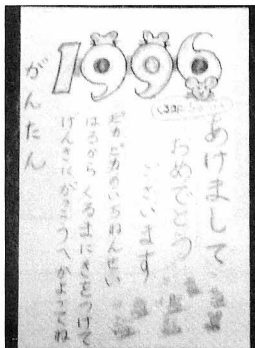 1996
あけまして
おめでとう
ございます
ぴかぴかのいちねんせい
はるからくるまにきをつけて
げんきにがっこうへかよってね
がんたん